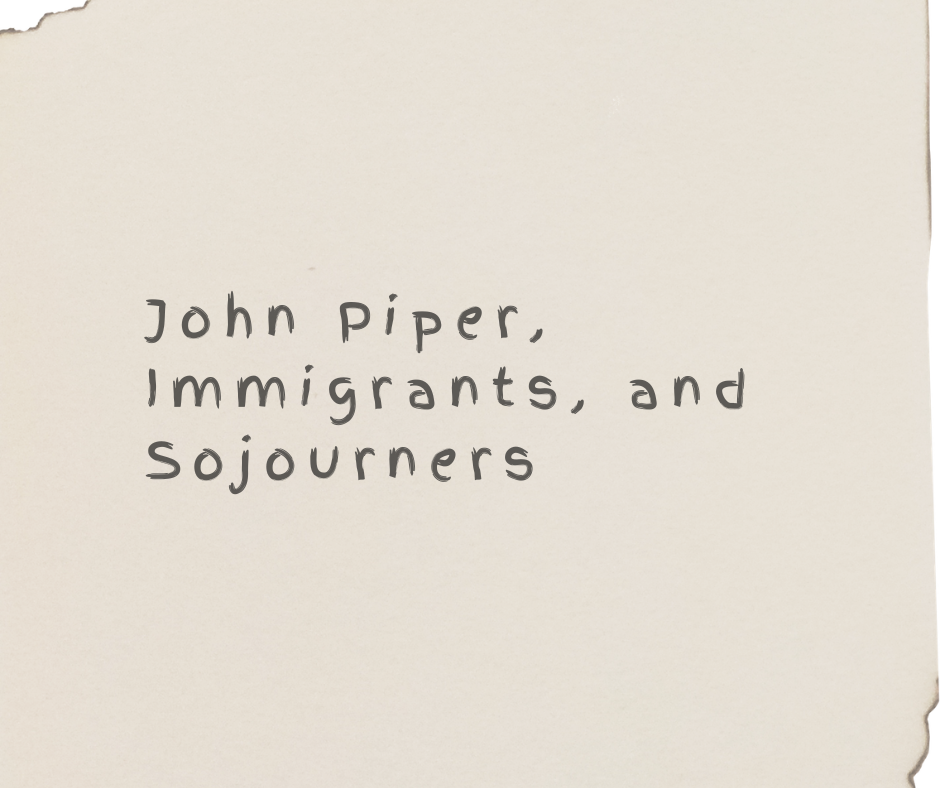 John Piper,
Immigrants, and
Sojourners